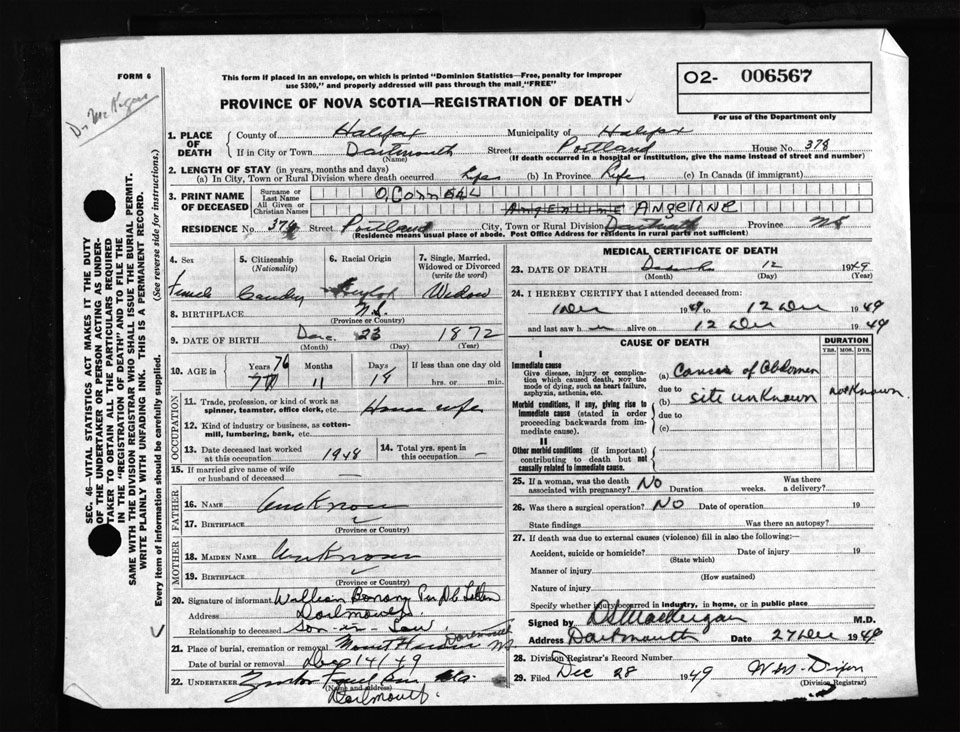 FORM 6
Dr McKegan
This form if placed in an envelope, on which is printed "Dominion Statistics—Free, penalty for improper
use $300," and properly addressed will pass through the mail, "FREE"
O2- 006567
For use of the Department only
PROVINCE OF NOVA SCOTIA—REGISTRATION OF DEATH
SEC. 46—VITAL STATISTICS ACT MAKES IT THE DUTY
OF THE UNDERTAKER OR PERSON ACTING AS UNDER-
TAKER TO OBTAIN ALL THE PARTICULARS REQUIRED
IN THE "REGISTRATION OF DEATH" AND TO FILE THE
SAME WITH THE DIVISION REGISTRAR WHO SHALL ISSUE THE BURIAL PERMIT.
WRITE PLAINLY WITH UNFADING INK. THIS IS A PERMANENT RECORD.
Every item of information should be carefully supplied. (See reverse side for instructions.)
1. PLACE OF DEATH County of Halifax Municipality of Halifax
If in City or Town Dartmouth Street Portland House No. 378
(Name) (If death occurred in a hospital or institution, give the name instead of street and number)
2. LENGTH OF STAY (in years, months and days)
(a) In City, Town or Rural Division where death occurred Life (b) In Province Life (c) In Canada (if immigrant)
3. PRINT NAME OF DECEASED Surname or Last Name O'Connell
All Given or Christian Names Angeline
RESIDENCE No. 378 Street Portland City, Town or Rural Division Dartmouth Province NS
(Residence means usual place of abode. Post Office Address for residents in rural parts not sufficient)
4. Sex 5. Citizenship (Nationality) 6. Racial Origin 7. Single, Married, Widowed or Divorced (write the word)
Female Widow
8. BIRTHPLACE N.S.
(Province or Country)
9. DATE OF BIRTH Dec. 23 1872
(Month) (Day) (Year)
10. AGE in Years 76 Months 11 Days 18 If less than one full day
hrs. or min.
OCCUPATION
11. Trade, profession, or kind of work as spinner, teamster, office clerk, etc. House wife
12. Kind of industry or business, as cotton-mill, lumbering, bank, etc.
13. Date deceased last worked at this occupation 1948 14. Total yrs. spent in this occupation —
15. If married give name of wife or husband of deceased
FATHER
16. NAME Unknown
17. BIRTHPLACE
(Province or Country)
MOTHER
18. MAIDEN NAME Unknown
19. BIRTHPLACE
(Province or Country)
20. Signature of informant William
Address Dartmouth.
Relationship to deceased Son-in-Law
21. Place of burial, cremation or removal Mount Dartmouth NS
Date of burial or removal Dec 14/49
22. UNDERTAKER
(Name and address)
Dartmouth.
MEDICAL CERTIFICATE OF DEATH
23. DATE OF DEATH December 12 1949
(Month) (Day) (Year)
24. I HEREBY CERTIFY that I attended deceased from:
1 Dec 1949 to 12 Dec 1949
and last saw her alive on 12 Dec 1949
CAUSE OF DEATH DURATION
YRS. MOS. DYS.
I
Immediate cause
Give disease, injury or complication which caused death, not the mode of dying, such as heart failure, asphyxia, asthenia, etc.
(a) Cancer of Abdomen
due to
(b) site unknown not known
Morbid conditions, if any, giving rise to immediate cause (stated in order proceeding backwards from immediate cause).
due to
(c)
II
Other morbid conditions (if important) contributing to death but not causally related to immediate cause.
25. If a woman, was the death associated with pregnancy? No Duration weeks. Was there a delivery?
26. Was there a surgical operation? No Date of operation 19
State findings Was there an autopsy?
27. If death was due to external causes (violence) fill in also the following:—
Accident, suicide or homicide? Date of injury 19
(State which)
Manner of injury
(How sustained)
Nature of injury
Specify whether injury occurred in industry, in home, or in public place
Signed by M.D.
Address Dartmouth Date 27 Dec 1949
28. Division Registrar's Record Number
29. Filed Dec 28 1949 Dixon
(Division Registrar)